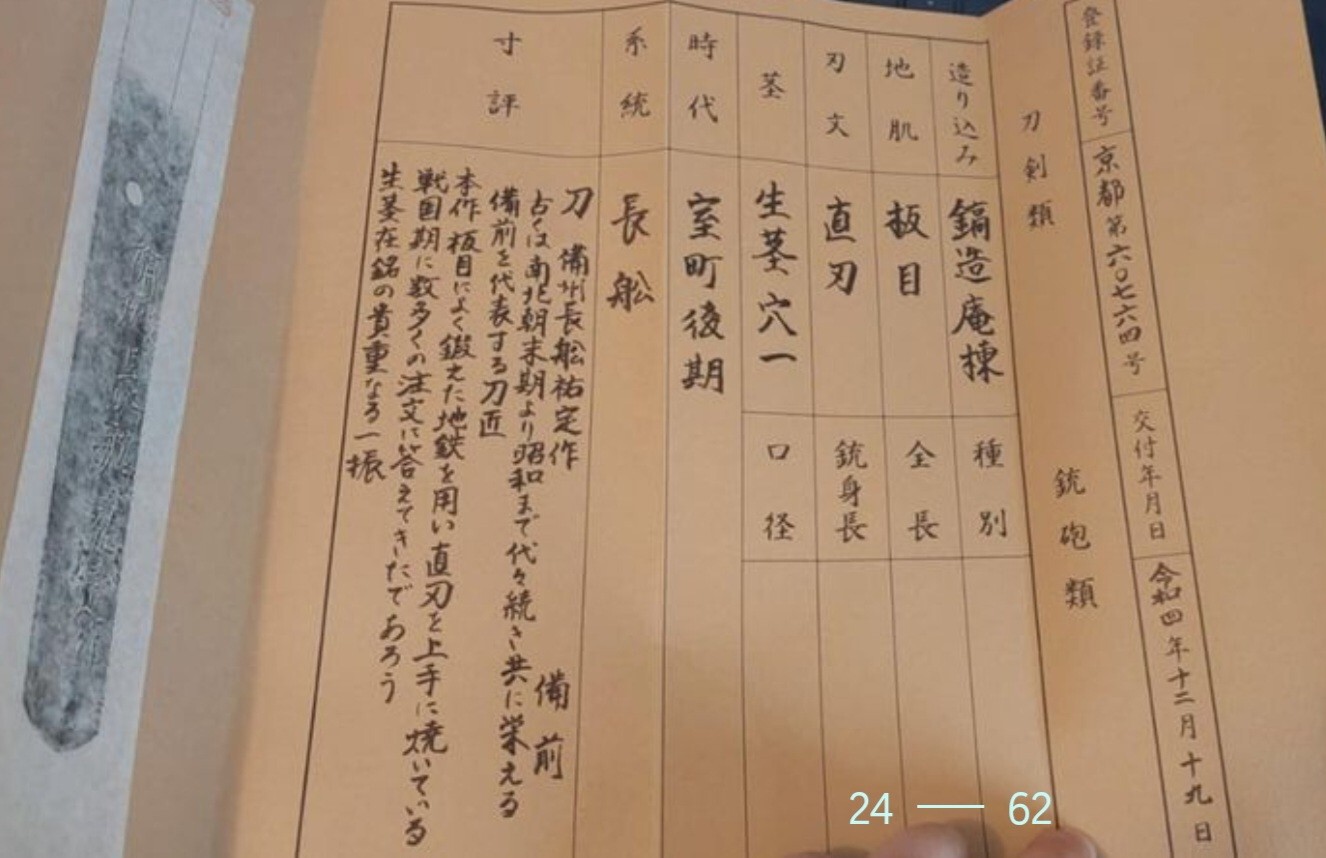 登録証番号 京都第六〇七六四号 交付年月日 令和四年十二月十九日
刀剣類 銃砲類
造り込み 鎬造庵棟 種別
地肌 板目 全長
刃文 直刃 銃身長
茎 生茎穴一 口径
時代 室町後期
系統 長舩
寸評
刀 備州長舩祐定作 備前
古くは南北朝末期より昭和まで代々続き共に栄える
備前を代表する刀匠
本作板目によく鍛えた地鉄を用い直刃を上手に焼いている
戦国期に数多くの注文に答えてきたであろう
生茎在銘の貴重なる一振
24 — 62